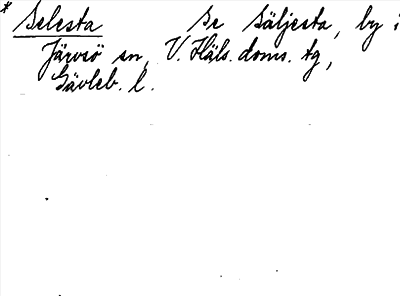 * Selesta Se Säljesta, by i
Järvsö sn, V. Häls. doms. tg,
Gävleb. l.